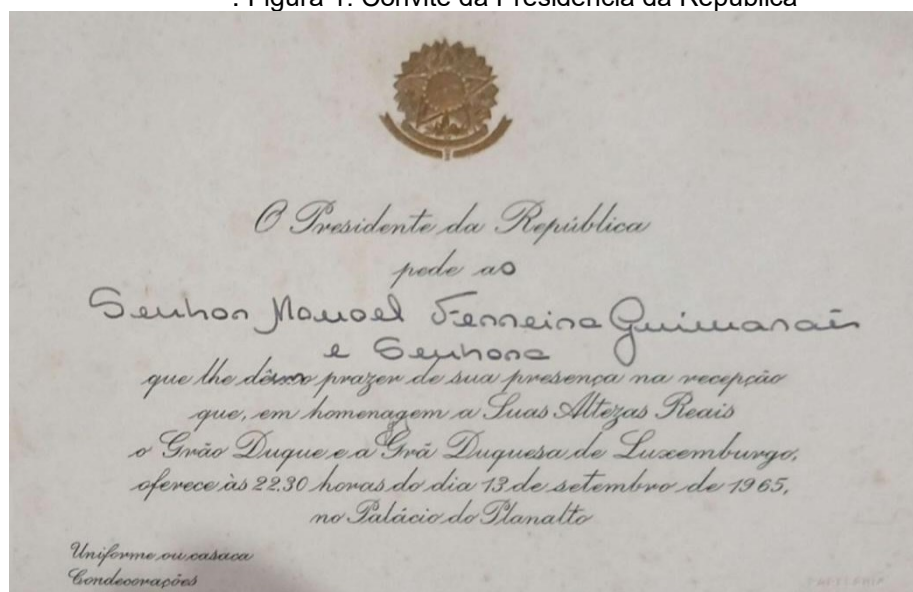 . Figura 1. Convite da Presidência da República
O Presidente da República
pede ao
Senhor Manoel Ferreira Guimarães
e Senhora
que lhe dêem o prazer de sua presença na recepção
que, em homenagem a Suas Altezas Reais
o Grão Duque e a Grã Duquesa de Luxemburgo,
oferece às 22.30 horas do dia 13 de setembro de 1965,
no Palácio do Planalto
Uniforme ou casaca
Condecorações